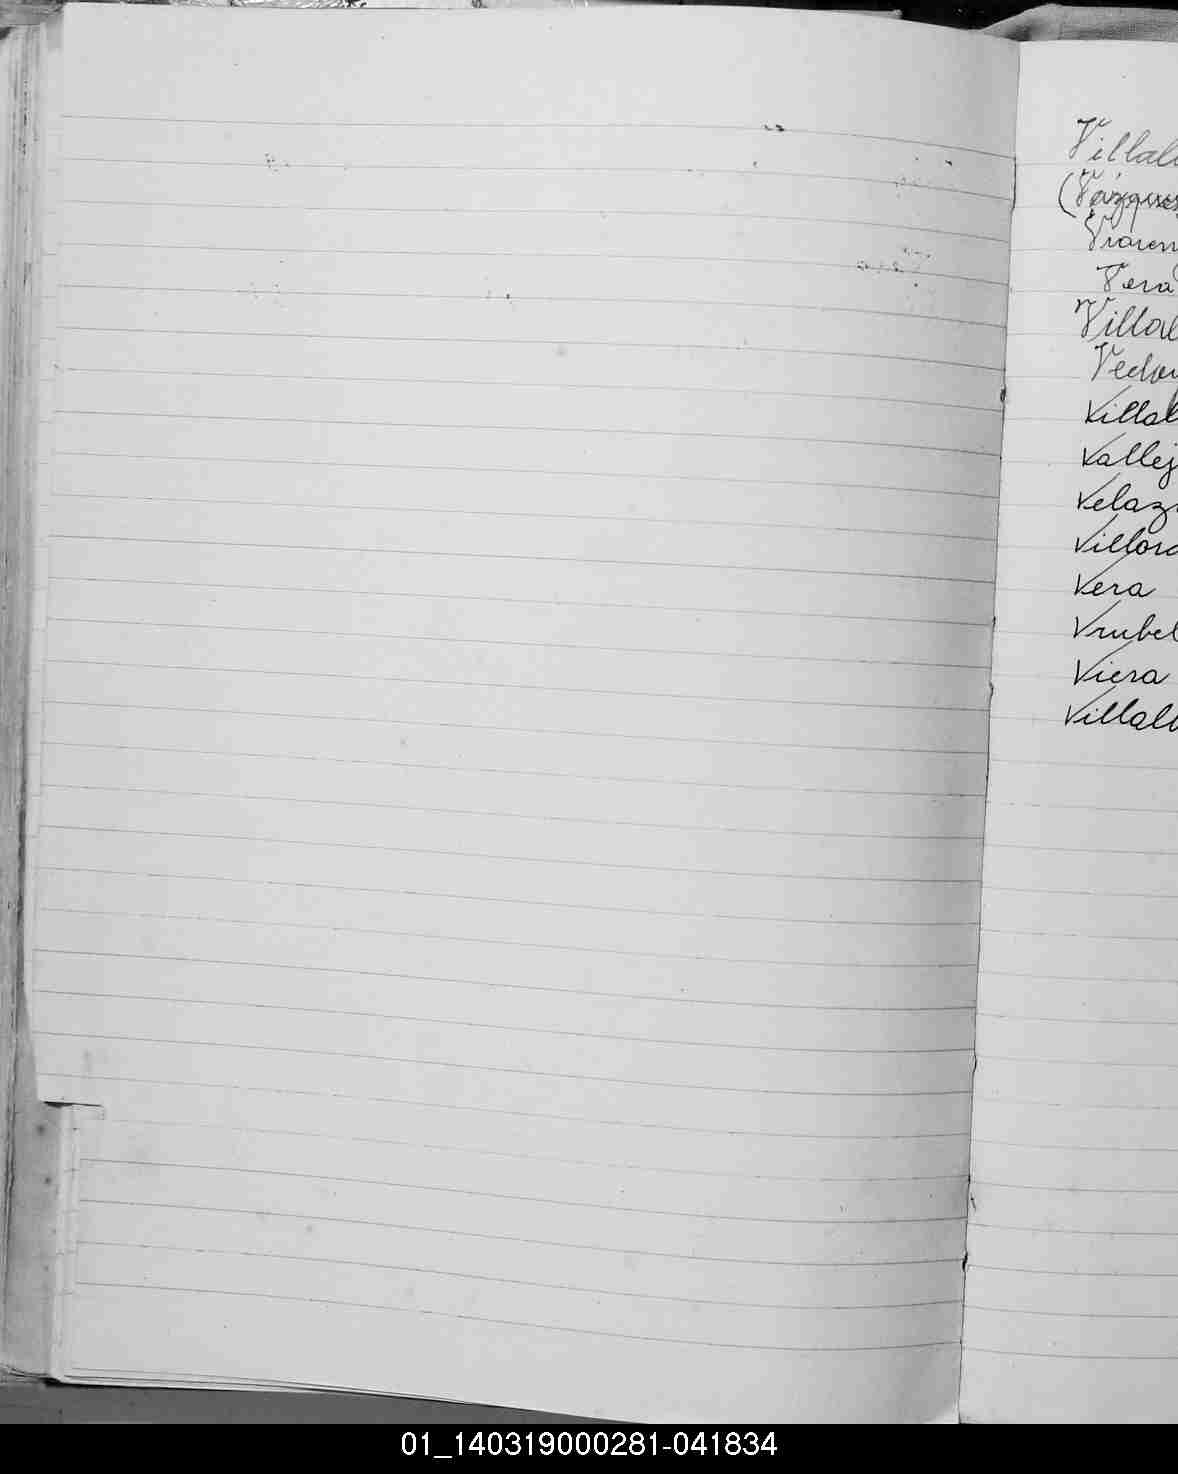 Villal
(Vázques
Vera
Villal
Villal
Vallej
Velaz
Vera
Vrubel
Viera
Villalb
01_140319000281-041834